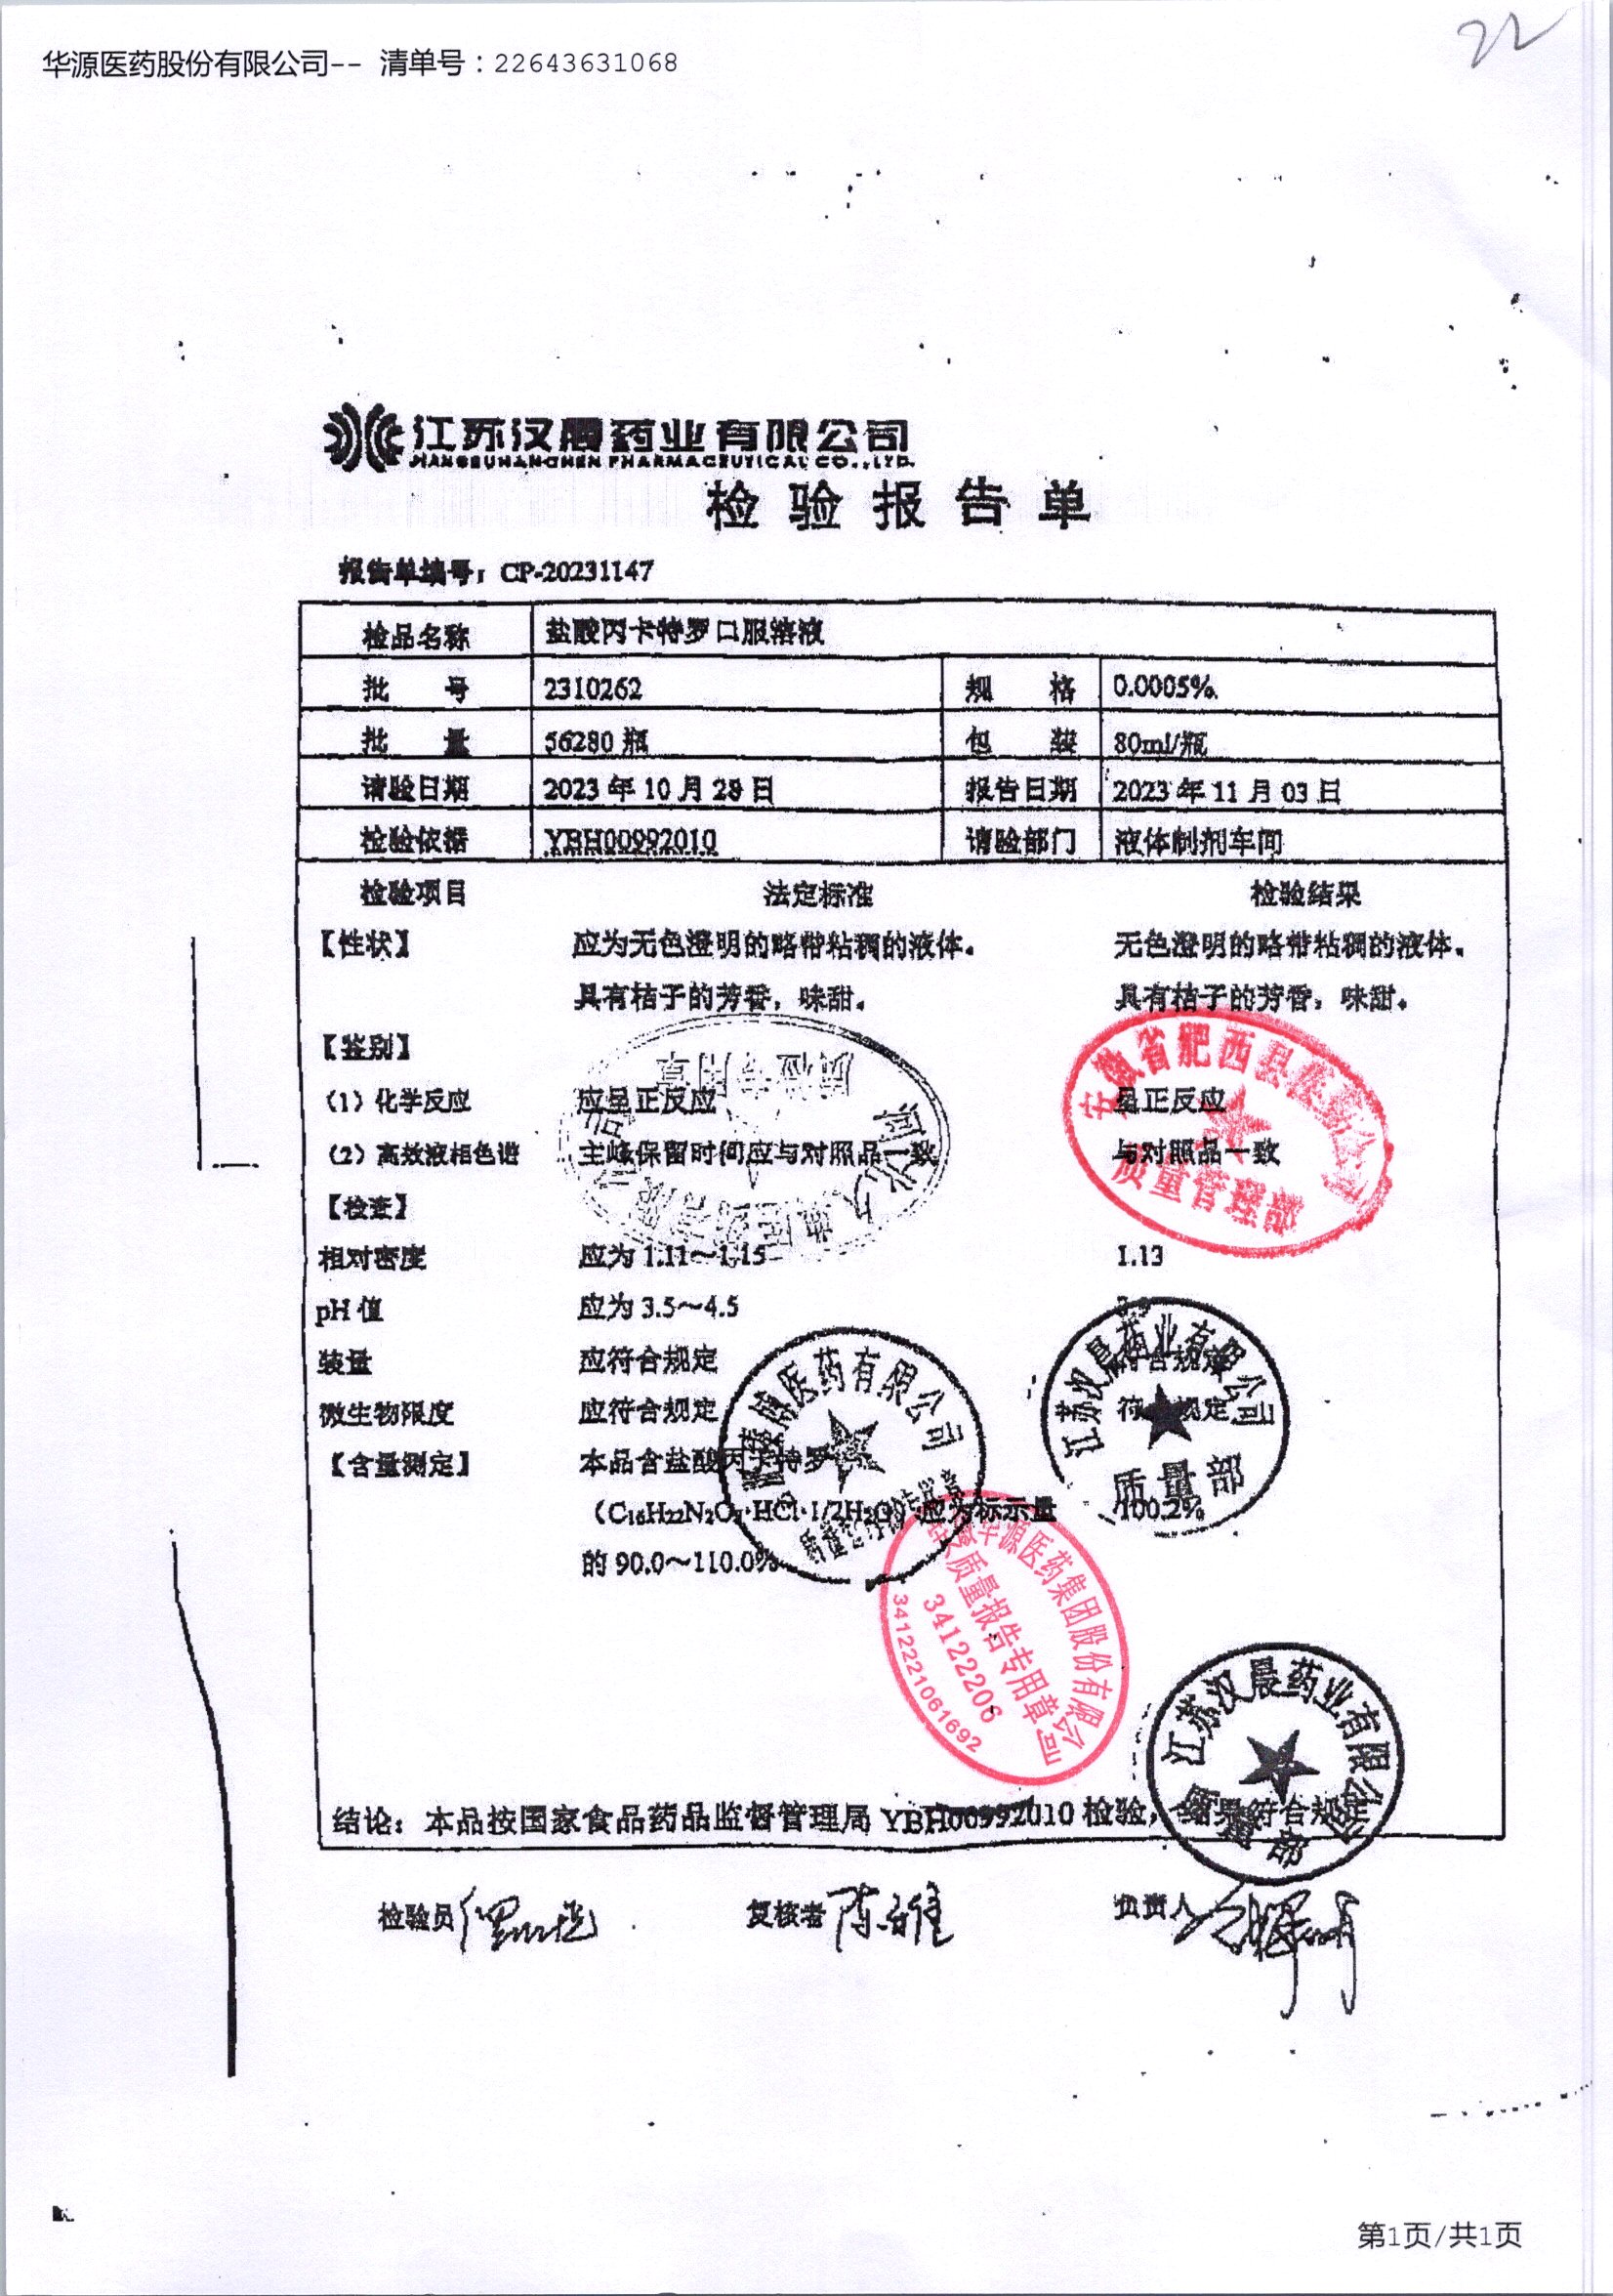 22
华源医药股份有限公司-- 清单号：22643631068
江苏汉晨药业有限公司
JIANGSUHANCHEN PHARMACEUTICAL CO.,LTD.
检验报告单
报告单编号：CP-20231147
检品名称 盐酸丙卡特罗口服溶液
批 号 2310262 规 格 0.0005%
批 量 56280 瓶 包 装 80ml/瓶
请验日期 2023 年 10 月 28 日 报告日期 2023 年 11 月 03 日
检验依据 YBH00992010 请验部门 液体制剂车间
检验项目 法定标准 检验结果
【性状】 应为无色澄明的略带粘稠的液体。 无色澄明的略带粘稠的液体。
具有桔子的芳香，味甜。 具有桔子的芳香，味甜。
【鉴别】
（1）化学反应 应呈正反应 呈正反应
（2）高效液相色谱 主峰保留时间应与对照品一致 与对照品一致
【检查】
相对密度 应为 1.11～1.15 1.13
pH 值 应为 3.5～4.5 3.9
装量 应符合规定 符合规定
微生物限度 应符合规定 符合规定
【含量测定】 本品含盐酸丙卡特罗
（C₁₆H₂₂N₂O₃·HCl·1/2H₂O）应为标示量 100.2%
的 90.0～110.0%
结论：本品按国家食品药品监督管理局 YBH00992010 检验，结果符合规
检验员 复核者 陈雅 负责人
安徽省肥西县医药公司
质量管理部
医药有限公司
江苏汉晨药业有限公司
质量部
华源医药集团股份有限公司
质量报告专用章
34122206
3412221061692
江苏汉晨药业有限公司
质量部
第1页/共1页